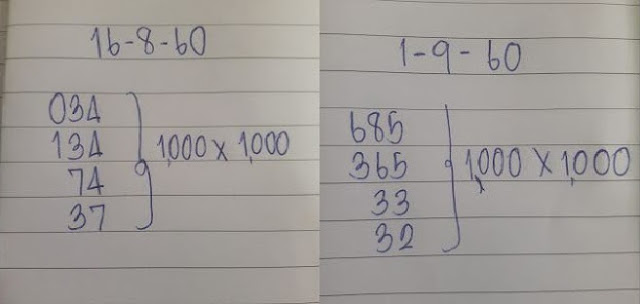 16-8-60
034
134
74
37
1,000 x 1,000
1-9-60
685
365
33
32
1,000 x 1,000